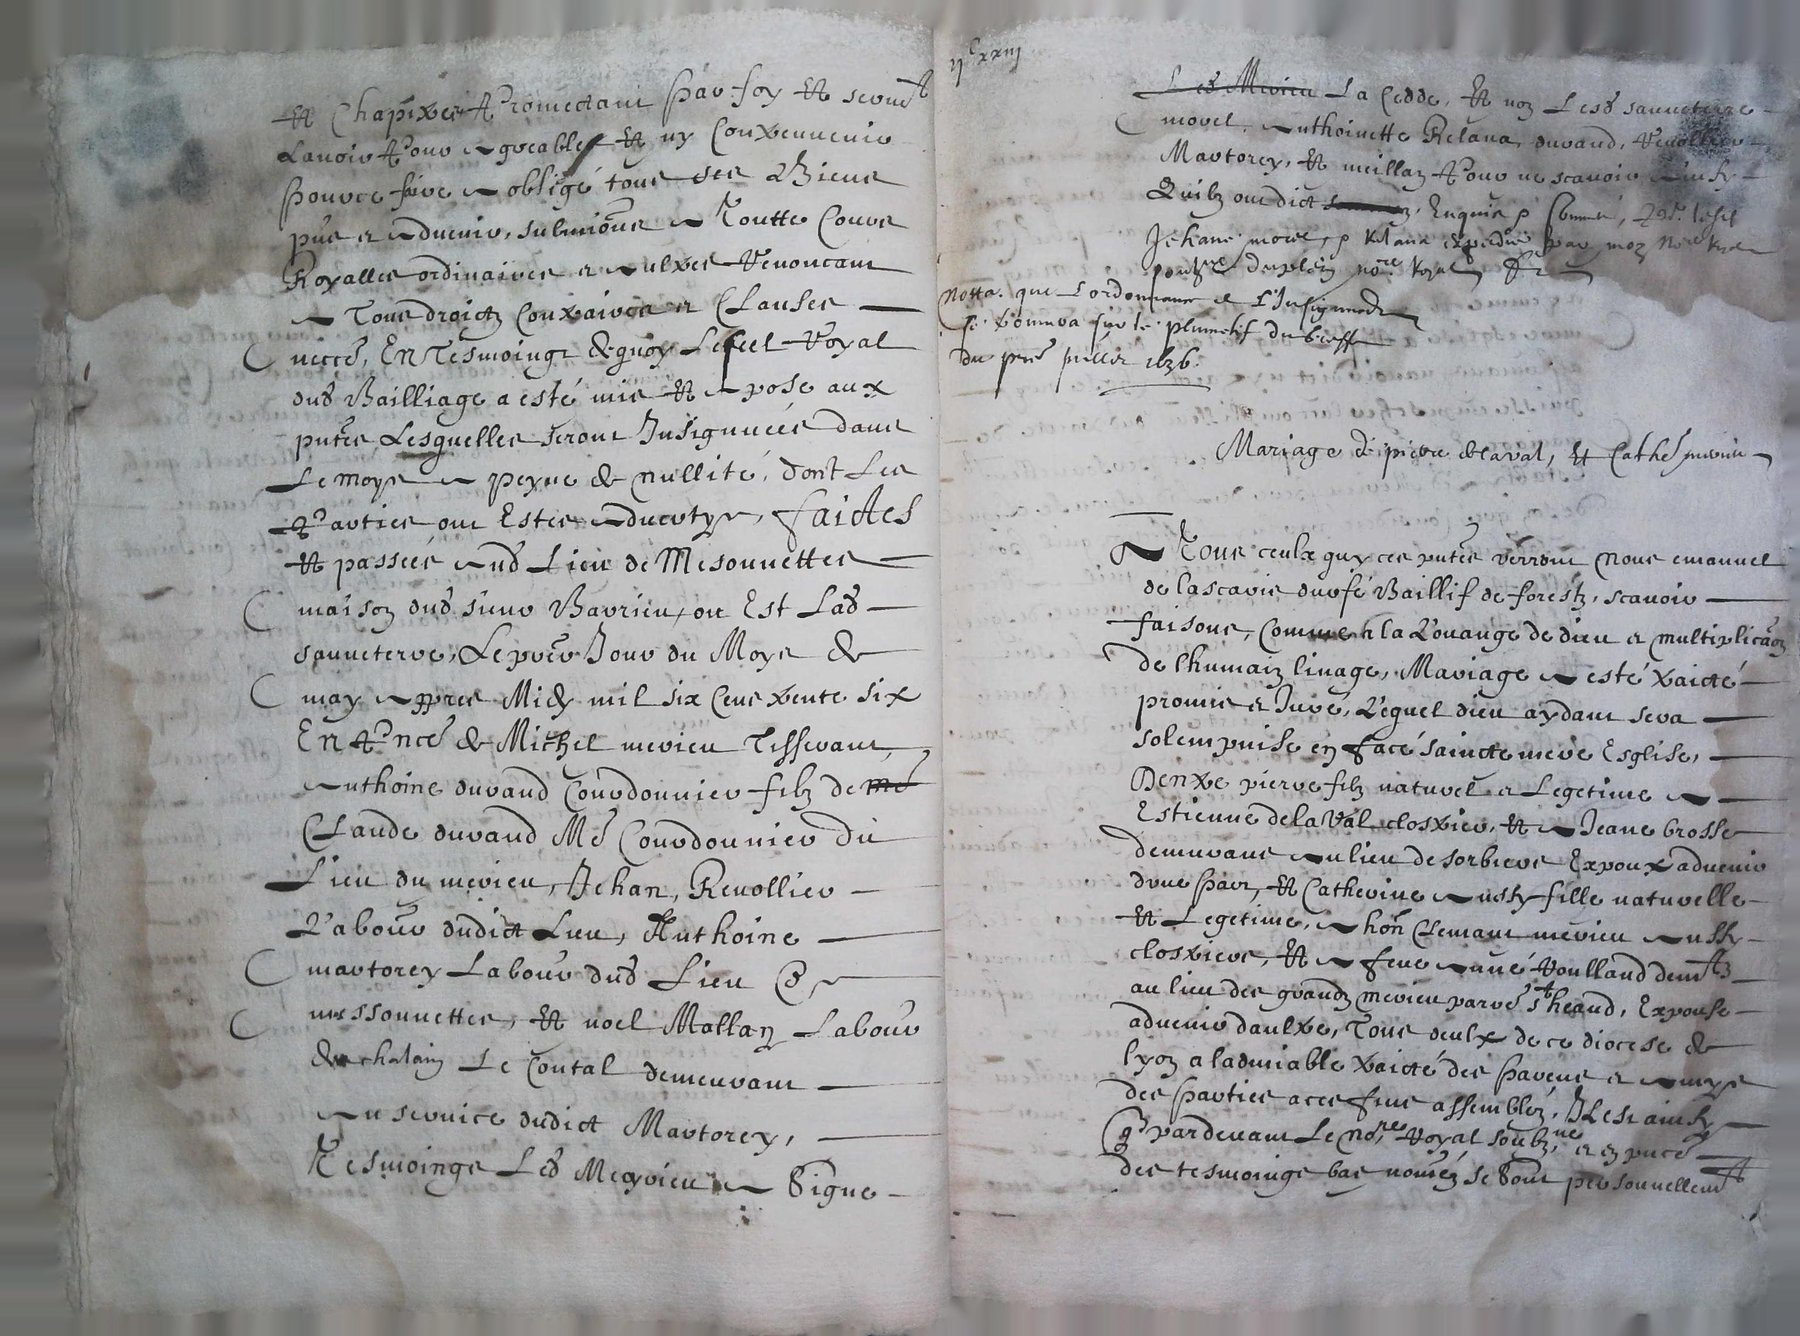 et chapitres promectant par foy et sermt
lavoir pour agreable et ny contrevenir
pource faire a obligé tous ses biens
pns et advenir, submions a toutte cours
Royalles ordinaires et aultres renoncant
a tous droictz contraires et clauses
necces, En tesmoing de quoy le seel royal
dud bailliage a esté mis et apose aux
pntes lesquelles seront Insignuées dans
le moys a peyne de nullité, dont les
parties ont estes advertys, faictes
et passées aud lieu de Mesonnettes
maison dud sieur Barrieu, ou est lad
sauveterre, le pre Jour du moys de
may appres midy mil six cens trente six
En pnce de Michel merieu tisserant
Anthoine durand courdonnier filz de me
Claude durand Me Courdonnier du
lieu du merieu, Jehan, Revollier
labour dudict lieu, Anthoine
martorey labour dud lieu de
messonnettes, et noel Mallan labour
de chalain le Contal demeurant
au service dudict Martorey,
Tesmoings led Meyrieu a signe
ijcxxiij
Led Merieu la cedde, et non lesd sauveterre
morel, Anthoinette Relana, durand, revollier
Martorey, et meillan pour ne scavoir ainsy
quilz ont dict, Enquis
Jehane morel, expedié par moy nore royal
nore royal
Notta que lordonnance de l'Insignuaon
se trouvera sur le plumetif du greffe
du pre juillet 1636.
Mariage de pierre delaval, et Cathe merieu
A Tous ceulx quy ces pntes verront nous emanuel
de lascaris durfé Baillif de forestz, scavoir
faisons, comme a la louange de dieu et multiplicaon
de lhumain linage, Mariage a esté traicté
promis et Juré, lequel dieu aydant sera
solempnise en face saincte mere Esglise,
Dentre pierre filz naturel et legetime a
Estienne delaval clostrier, et a Jeane brosse
demurans au lieu de sorbiers Expoux advenir
dune part, et Catherine aussy fille naturelle
et legetime, a hon Clemant merieu aussy
clostrier, et a feue anne voulland demts
au lieu des grandz merieu parre st heand, Expouse
advenir daultre, tous deulx de ce diocese de
lyon a ladmiable traicté des parens et amys
des parties a ces fins assemblez, Il est ainsy
q pardevant le nore royal soubzne et en pnce
des tesmoings bas nomez se sont personnellemt